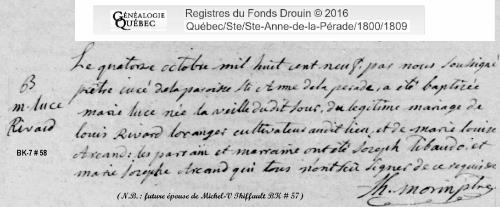 GÉNÉALOGIE QUÉBEC
Registres du Fonds Drouin © 2016
Québec/Ste/Ste-Anne-de-la-Pérade/1800/1809
B
m. luce
Rivard
BK-7 # 58
Le quatorze octobre mil huit cent neuf, par nous soussigné
prêtre curé de la paroisse Ste Anne de la perade, a été baptisée
marie luce née la veille dudit jour, du legitime mariage de
louis Rivard loranger cultivateur audit lieu, et de marie louise
Arcand; les parrain et marraine ont été Joseph
marie Josephe Arcand qui tous n'ont sçu signer de ce requis
(N.B. : future épouse de Michel-V Thiffault BK # 57)